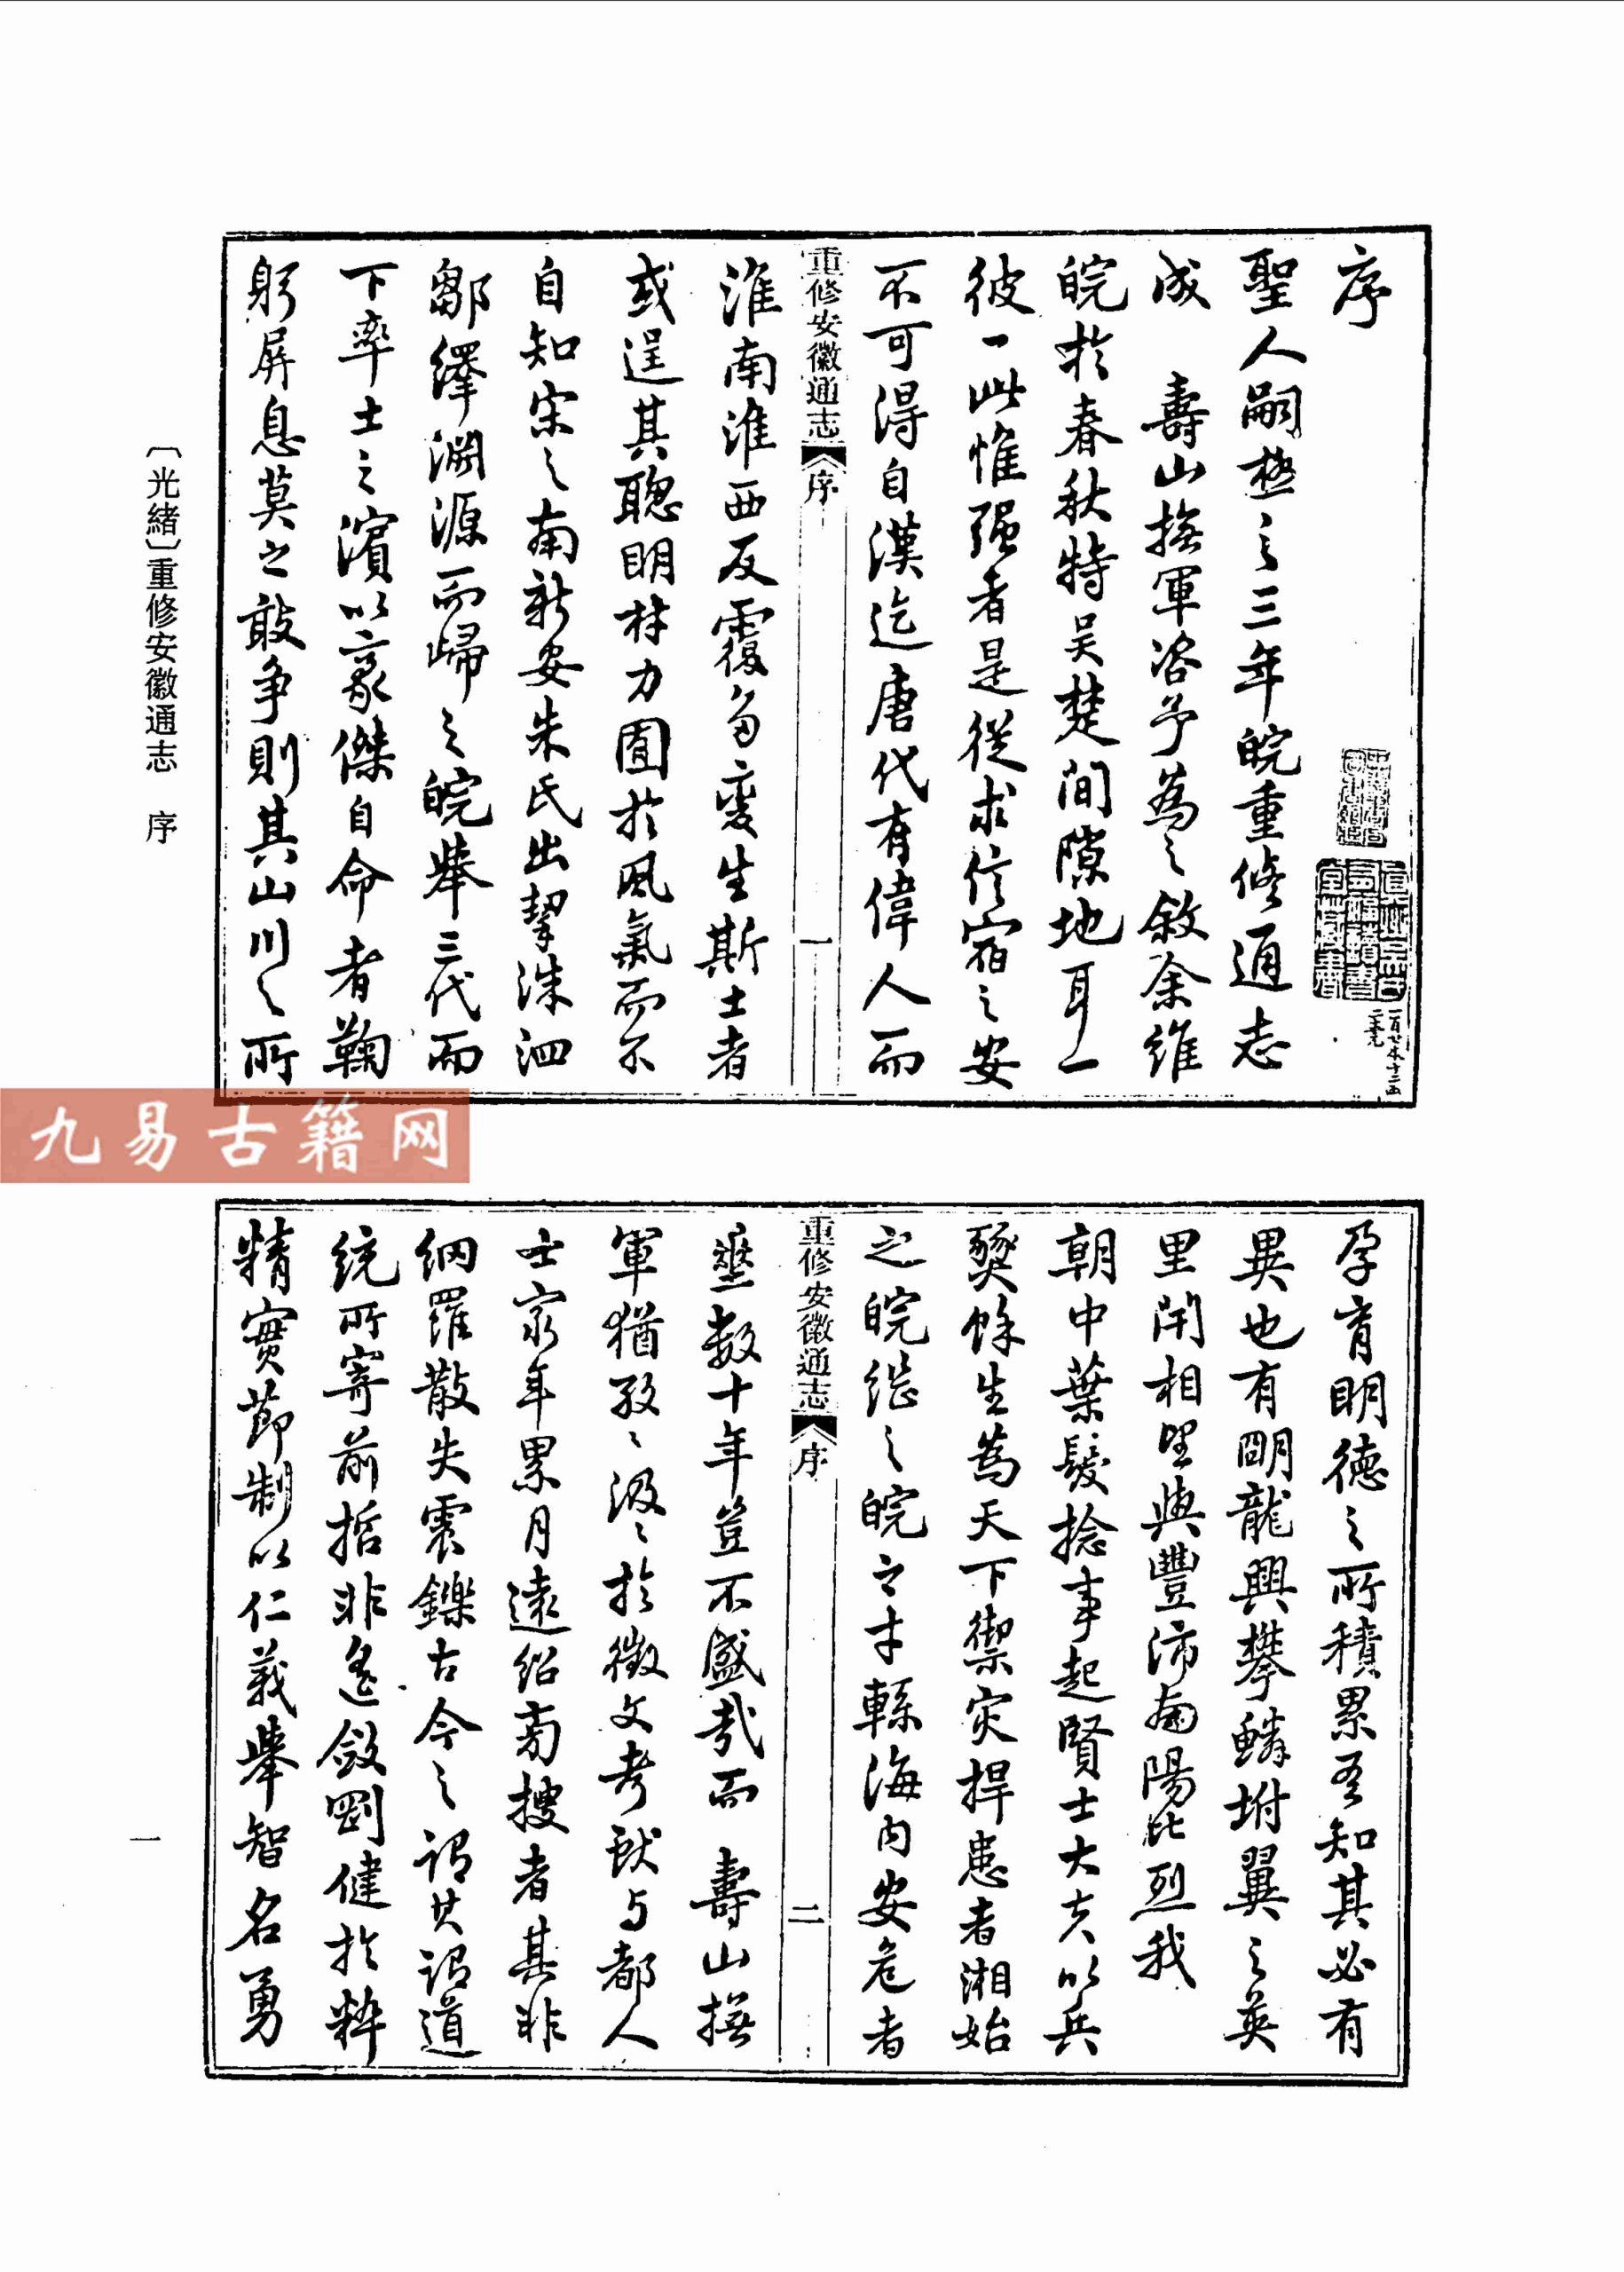 序
聖人嗣極之三年皖重修通志
成　壽山撫軍咨予為之敘余維
皖於春秋特吳楚間隙地耳一
彼一此惟强者是從求信宿之安
不可得自漢迄唐代有偉人而
重修安徽通志　序　一
淮南淮西反覆多變生斯土者
或逞其聰明材力囿於風氣而不
自知宋之南新安朱氏出挈洙泗
鄒繹淵源而歸之皖舉三代而
下率土之濱以豪傑自命者鞠
躬屏息莫之敢爭則其山川之所
一百廿本十二函
〔光緒〕重修安徽通志　序
九易古籍网
孕育明德之所積累吾知其必有
異也有明龍興攀鱗坿翼之英
里閈相望與豐沛南陽比烈我
朝中葉髮捻事起賢士大夫以兵
燹餘生為天下禦灾捍患者湘始
之皖繼之皖之才繇海内安危者
重修安徽通志　序　二
垂數十年豈不盛哉而　壽山撫
軍猶孜〻汲〻於徵文考獻与都人
士窮年累月遠紹旁搜者其非
網羅散失震鑠古今之謂其謂道
統所寄前哲非遙斂剛健於粹
精寓節制以仁義舉智名勇
一